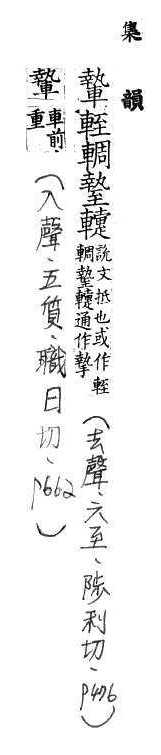 集韻
䡹輊輖墊𨎌說文抵也或作輊
輖墊𨎌通作摯(去聲、六至、陟利切、P476)
䡹車前
重(入聲、五質、職日切、P662)